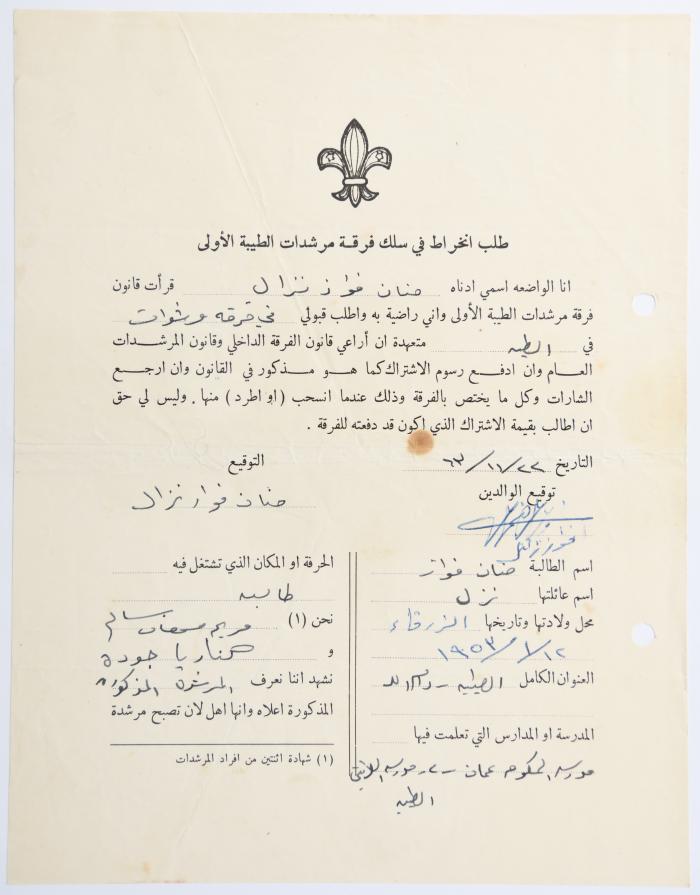 طلب انخراط في سلك فرقة مرشدات الطيبة الأولى
انا الواضعه اسمي ادناه حنان فواز نزال قرأت قانون
فرقة مرشدات الطيبة الأولى واني راضية به واطلب قبولي في فرقة مرشدات
في الطيبه متعهدة ان أراعي قانون الفرقة الداخلي وقانون المرشدات
العام وان ادفع رسوم الاشتراك كما هو مذكور في القانون وان ارجع
الشارات وكل ما يختص بالفرقة وذلك عندما انسحب (او اطرد) منها. وليس لي حق
ان اطالب بقيمة الاشتراك الذي اكون قد دفعته للفرقة.
التاريخ ٢٢/١١/٦٣
التوقيع
حنان فواز نزال
توقيع الوالدين
اسم الطالبة حنان فواز
اسم عائلتها نزال
محل ولادتها وتاريخها الزرقاء
١٢/١/١٩٥٣
العنوان الكامل الطيبه - رام الله
المدرسة او المدارس التي تعلمت فيها
مدرسة عمان - مدرسة اللاتين
الطيبه
الحرفة او المكان الذي تشتغل فيه
طالبه
نحن (١) مريم سالم
و جودة
نشهد اننا نعرف المرشدة المذكورة
المذكورة اعلاه وانها اهل لان تصبح مرشدة
(١) شهادة اثنتين من افراد المرشدات